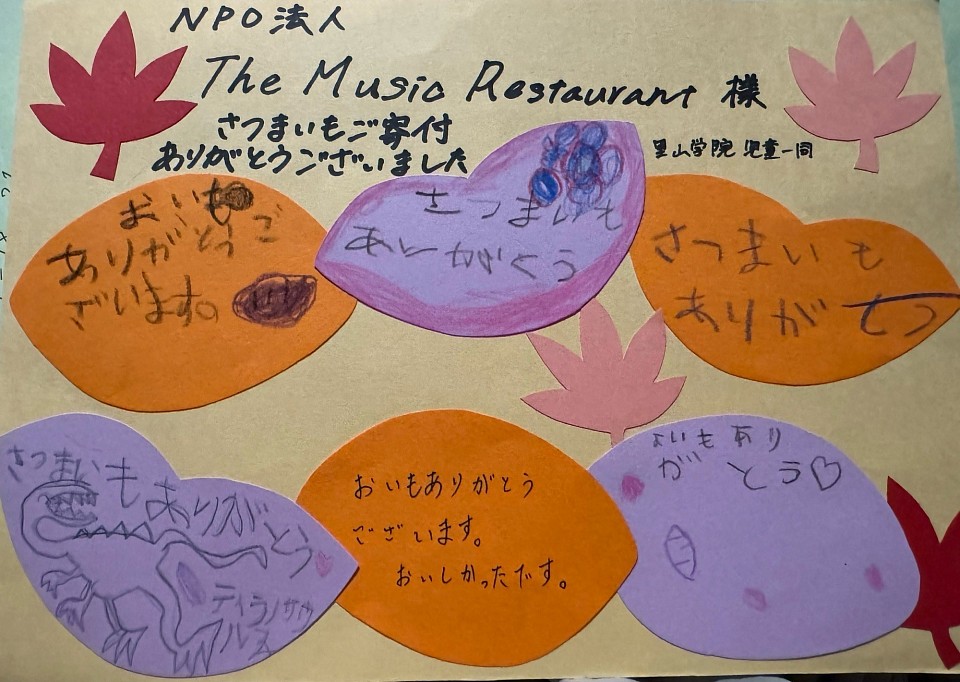 NPO法人
The Music Restaurant 様
さつまいもご寄付
ありがとうございました
里山学院 児童一同
おいも
ありがとうご
ざいます。
さつまいも
ありがとう
さつまいも
ありがとう
さつまいもありがとう
ティラノサウ
ルス
おいもありがとう
ございます。
おいしかったです。
おいもあり
がとう♡